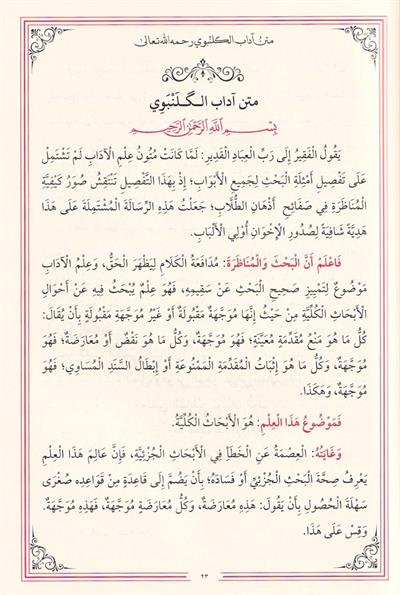 متن آداب الكلنبوي رحمه الله تعالى
متن آداب الگَلَنْبَوِي
بِسْمِ اللَّهِ الرَّحْمَنِ الرَّحِيمِ
يَقُولُ الْفَقِيرُ إِلَى رَبِّ الْعِبَادِ الْقَدِيرِ: لَمَّا كَانَتْ مُتُونُ عِلْمِ الْآدَابِ لَمْ تَشْتَمِلْ
عَلَى تَفْصِيلِ أَمْثِلَةِ الْبَحْثِ لِجَمِيعِ الْأَبْوَابِ؛ إِذْ بِهَذَا التَّفْصِيلِ تَنْتَقِشُ صُوَرُ كَيْفِيَّةِ
الْمُنَاظَرَةِ فِي صَفَائِحِ أَذْهَانِ الطُّلَّابِ؛ جَعَلْتُ هَذِهِ الرِّسَالَةَ الْمُشْتَمِلَةَ عَلَى هَذَا
هَدِيَّةً شَافِيَةً لِصُدُورِ الْإِخْوَانِ أُولِي الْأَلْبَابِ.
فَاعْلَمْ أَنَّ الْبَحْثَ وَالْمُنَاظَرَةَ: مُدَافَعَةُ الْكَلَامِ لِيَظْهَرَ الْحَقُّ، وَعِلْمُ الْآدَابِ
مَوْضُوعٌ لِتَمْيِيزِ صَحِيحِ الْبَحْثِ عَنْ سَقِيمِهِ، فَهُوَ عِلْمٌ يُبْحَثُ فِيهِ عَنْ أَحْوَالِ
الْأَبْحَاثِ الْكُلِّيَّةِ مِنْ حَيْثُ إِنَّهَا مُوَجَّهَةٌ مَقْبُولَةٌ أَوْ غَيْرُ مُوَجَّهَةٍ مَقْبُولَةٍ بِأَنْ يُقَالَ:
كُلُّ مَا هُوَ مَنْعُ مُقَدِّمَةٍ مُعَيَّنَةٍ؛ فَهُوَ مُوَجَّهَةٌ، وَكُلُّ مَا هُوَ نَقْضٌ أَوْ مُعَارَضَةٌ؛ فَهُوَ
مُوَجَّهَةٌ، وَكُلُّ مَا هُوَ إِثْبَاتُ الْمُقَدِّمَةِ الْمَمْنُوعَةِ أَوْ إِبْطَالُ السَّنَدِ الْمُسَاوِي؛ فَهُوَ
مُوَجَّهَةٌ، وَهَكَذَا.
فَمَوْضُوعُ هَذَا الْعِلْمِ: هُوَ الْأَبْحَاثُ الْكُلِّيَّةُ.
وَغَايَتُهُ: الْعِصْمَةُ عَنِ الْخَطَأِ فِي الْأَبْحَاثِ الْجُزْئِيَّةِ، فَإِنَّ عَالِمَ هَذَا الْعِلْمِ
يَعْرِفُ صِحَّةَ الْبَحْثِ الْجُزْئِيِّ أَوْ فَسَادَهُ؛ بِأَنْ يَضُمَّ إِلَى قَاعِدَةٍ مِنْ قَوَاعِدِهِ صُغْرَى
سَهْلَةَ الْحُصُولِ بِأَنْ يَقُولَ: هَذِهِ مُعَارَضَةٌ، وَكُلُّ مُعَارَضَةٍ مُوَجَّهَةٌ، فَهَذِهِ مُوَجَّهَةٌ.
وَقِسْ عَلَى هَذَا.
٢٣